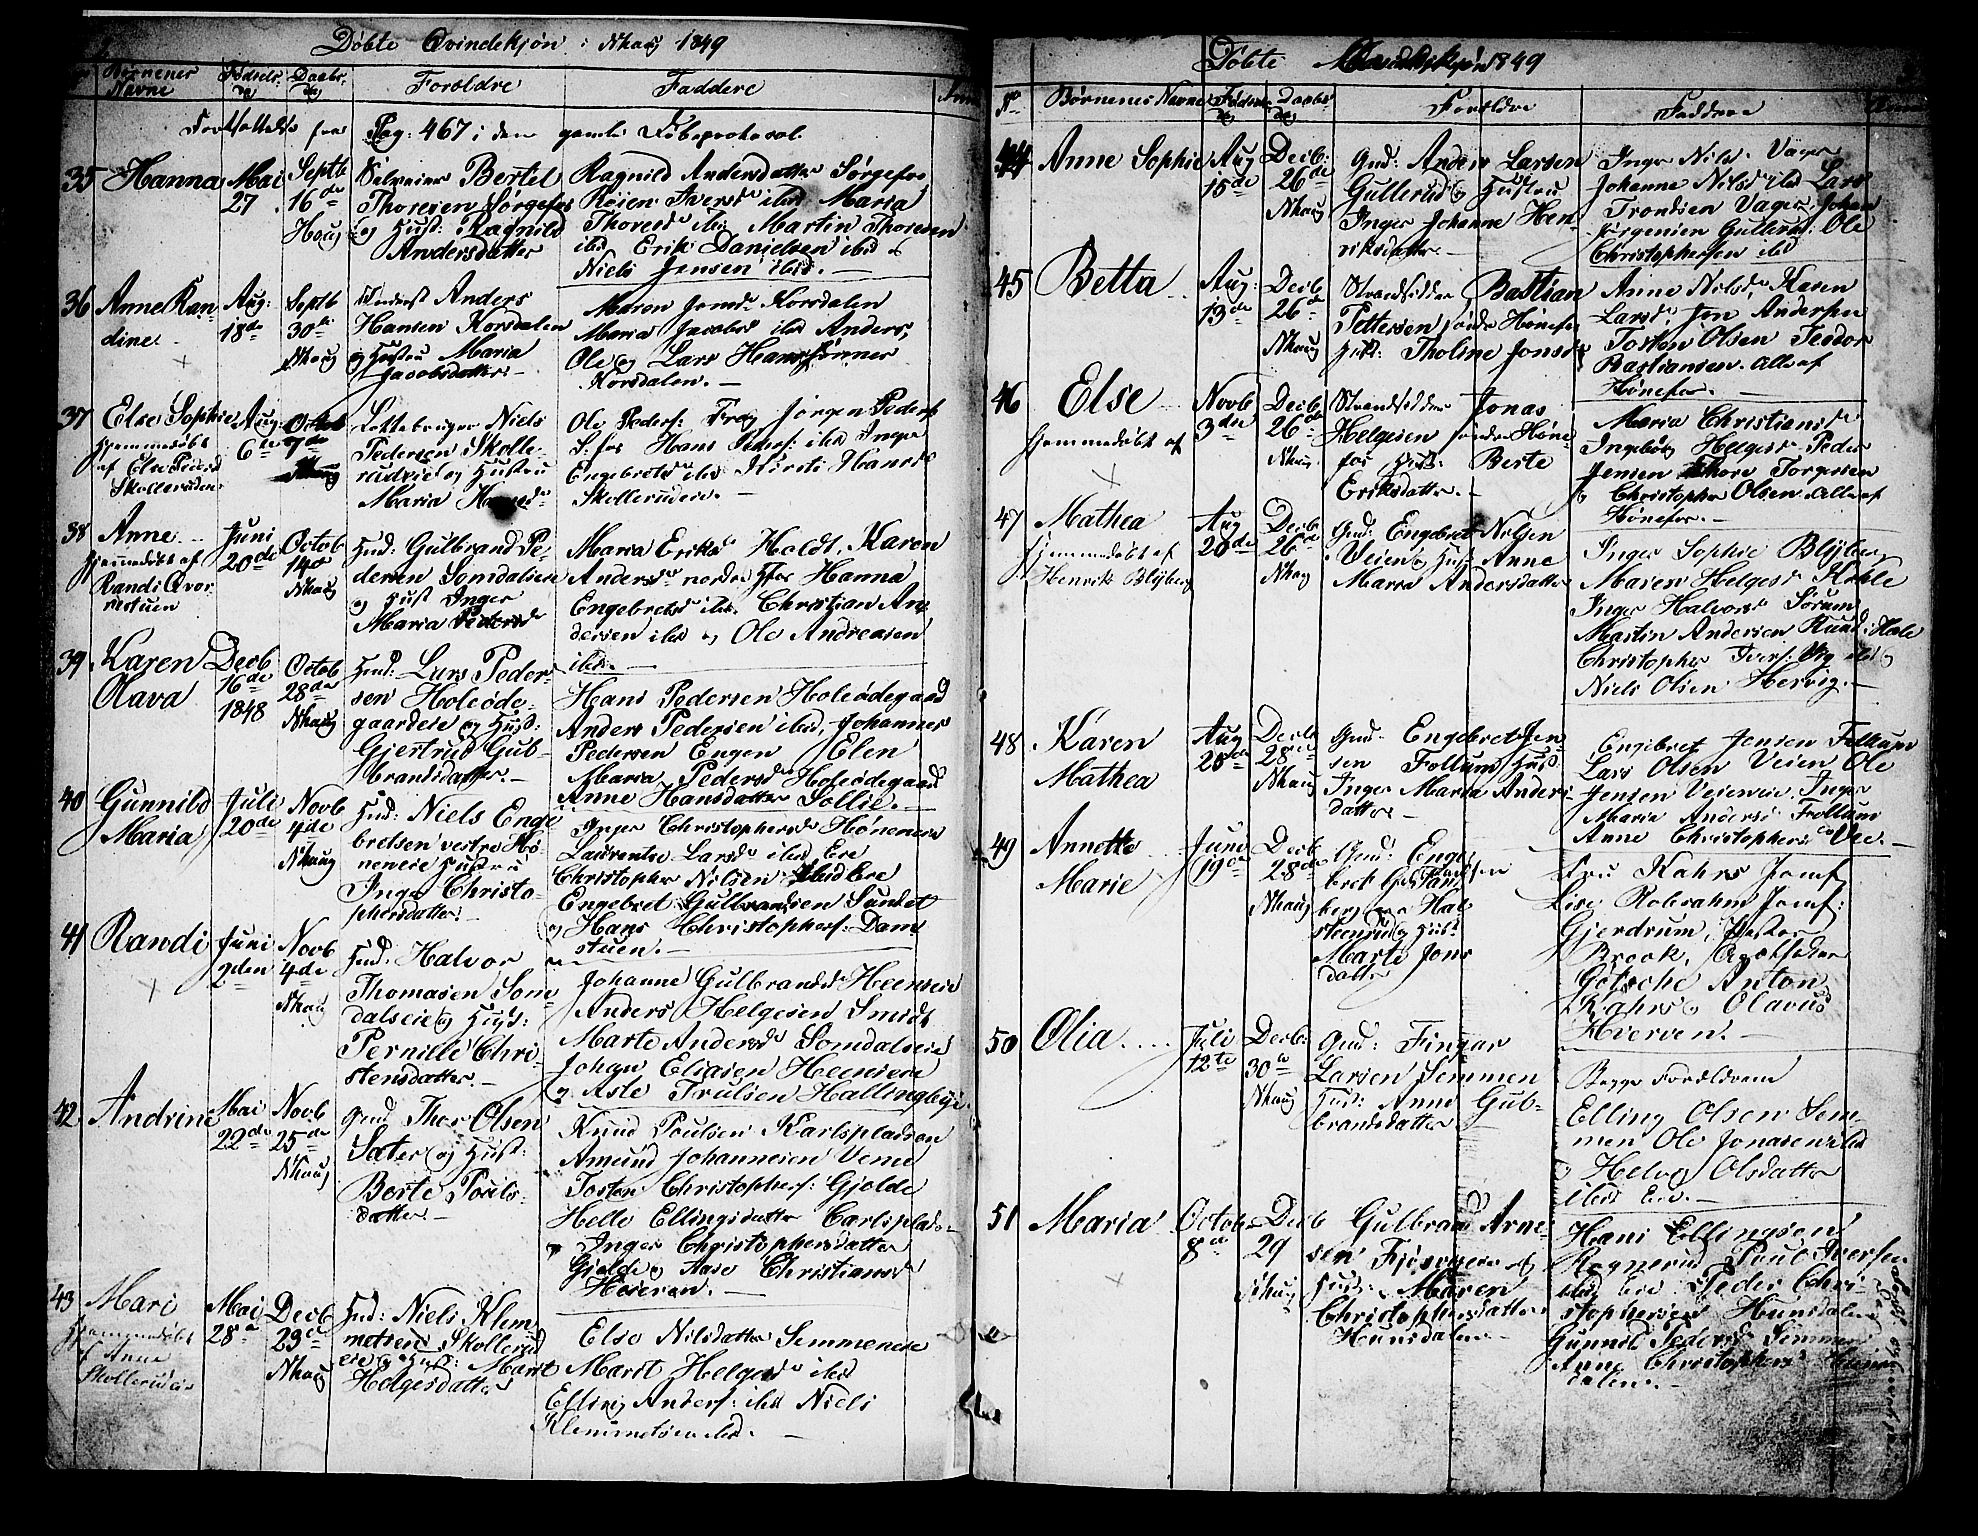 Döbte Qvindekjøn i Nhaug 1849
Børnenes Navne
Fødsels Dag
Daabs Dag
Forældre
Faddere
Fortsættelse fra Pag: 467 i den gamle Døbeprotocol
35 Hanna
Mai 27
Septb 16de Haug
Selveier Bertel
Thoresen Sørgefos
og Hust: Ragnild
Andersdatter
Ragnild Andersdatter Sørgefos
Røien Iversd ibid Maria
Thoresd ibid Martin Thoresen
ibid Erik Danielsen ibid og
Niels Jensen ibid. —
36 Anne Randine
Aug: 18de
Septb 30te Nhaug
Anders
Hansen Korsdalen
og Hustru Maria
Jacobsdatter. -
Maren Jensd Korsdalen
Maria Jacobsd ibid Anders,
Ole og Lars Hanssønner
Korsdalen. —
37 Else Sophie
hjemmedøbt
af Else Pedersd
Skollerudeie
Aug: 6te
Octob 7de Nhaug
Niels
Pedersen Skollerudeie
og Hustru
Maria Hansd
Ole Pederss: Frog Jørgen Pederss
S:fos Hans Iverss: ibid Inger
Engebretsd ibid Kirsti Hansd
Skollerudeie. —
38 Anne
hjemmedøbt af
Randi Qvernstuen
Juni 20de
Octob 14de Nhaug
Hmd: Gulbrand Pedersen
Somdalseien
og Hust Inger
Maria Pedersd
Maria Eriksd Holdt, Karen
Andersd nordre Hfos Hanna
Engebretsd ibid. Christian Andersen
ibid og Ole Andreasen
ibid. —
39 Karen Olava
Decb 16de 1848
Octob 28de Nhaug
Hmd: Lars Pedersen
Holeødegaardeie
og Hust:
Gjertrud Gulbrandsdatter. —
Hans Pedersen Holeødegaard
Anders Pedersen ibid, Johannes
Pedersen Engen Elen
Maria Pedersd Holeødegaard
Anne Hansdatter Sollie. —
40 Gunnild Maria
Juli 20de
Novb 4de Nhaug
Hmd: Niels Engebretsen
vestre Høneneie
Hustru
Inger Christophersdatter. —
Inger Christophersd Høneneie
Laurentse Larsd ibid Eie
Christopher Nilsen ibid Eie
Engebret Gulbrandsen Sundet
og Hans Christopherss: Damstuen. —
41 Randi
Juni 2den
Novb 4de Nhaug
Hmd. Halvor
Thomasen Somdalseie
og Hust:
Pernille Christensdatter. —
Johanne Gulbrandsd Heenseie
Anders Helgesen Smidt
Marte Andersd Somdalseie
Johan Eliasen Heenseie
og Asle Trulsen Hallingbye.
42 Andrine
Mai 22de
Novb 25de Nhaug
Gmd Thor Olsen
Sæter og Hust:
Berte Poulsdatter. —
Knud Poulsen Karlspladsen
Amund Johannesen Veme
Tosten Christopherss: Gjolde
Helle Ellingsdatter Carlsplads
Inger Christophersdatter
Gjolde og Aase Christiansd
Høieren. —
43 Mari
hjemmedøbt
af Anne
Skollerudeie
Mai 28de
Decb 23de Nhaug
Hmd: Niels Klemmetsen
Skollerudeie
og Hust: Marit
Helgesdatter
Else Nilsdatter Semmeneie
Marit Helgesd ibid
Elling Anderss: ibid Niels
Klemmetsen ibid. —
Døbte Qvindekjøn 1849
No
Børnenes Navne
Fødsels Dag
Daabs Dag
Forældre
Faddere
44 Anne Sophie
Aug 15de
Decb: 26de Nhaug
Gmd: Anders Larsen
Gullerud og Hustru
Inger Johanne Henriksdatter. —
Inger Nilsd. Vager
Johanne Nilsd ibid Lars
Trondsen Vager. Johan
Jørgensen Gullerud: Ole
Christophersen ibid
45 Betta
Aug: 13de
Decb 26de Nhaug
Strandsidder Bastian
Pettersen søndre Hønefos
Hust: Tholine Jonsd
Anne Nilsd, Karen
Larsd Jon Andersen
Tosten Olsen Teodor
Bastiansen. Alle af
Hønefos. —
46 Else
hjemmedøbt af
Novb 3die
Decb 26de Nhaug.
Strandsidder Jonas
Helgesen søndre Hønefos
Hust: Berte
Eriksdatter. —
Maria Christiansd
Ingeborg Helgesd Peder
Jensen Thore Torgersen
og Christopher Olsen Alle af
Hønefos. —
47 Mathea
hjemmedøbt af
Henrik Blyberg
Aug 20de
Decb 26de Nhaug
Gmd: Engebret Nilsen
Veien og Hust Anne
Maria Andersdatter
Inger Sophie Blyberg
Maren Helgesd Kihle
Inger Halvorsd Sørum
Martin Andersen Rund i Hole
Christopher Iverss: Vig ibid og
Niels Olsen Hervig. —
48 Karen Mathea
Aug 28de
Decb 28de Nhaug
Gmd. Engebret Jensen
Follum Hust
Inger Maria Andersdatter. —
Engebret Jensen Follum
Lars Olsen Veien Ole
Jensen Veieneie. Inger
Maria Andersd Follum
Anne Christophersd Vee. —
49 Annette Marie
Juni 19de
Decb 28de Nhaug
Gmd: Engebret
Halsteinrud og Hust
Marte Jonsdatter
Fru Kahrs Jomf:
Lise Robsahm Jomf:
Gjerdrum,
Brock, Apotheker
Götsche Anton
Kahrs og Olavus
Hverven. —
50 Olia
Juli 12te
Decb: 30te Nhaug
Gmd: Fingar
Larsen Semmen
Hust: Anne Gulbrandsdatter
Begge Forældrene
Elling Olsen Semmen
Ole Jonasen ibid
og Helvig Olsdatter
ibid Eie. —
51 Maria
Octob 8de
Decb 29 Nhaug
Gulbrand Arnesen
og
Hust: Maren
Christophersdatter
Hunsdalen. —
Hans Ellingsen
Rognerud Poul Iversen
ibid Eie Peder Christophersen
Hunsdalen
Gunnild Pedersd Semmen
Anne Christophersd Hunsdalen. —